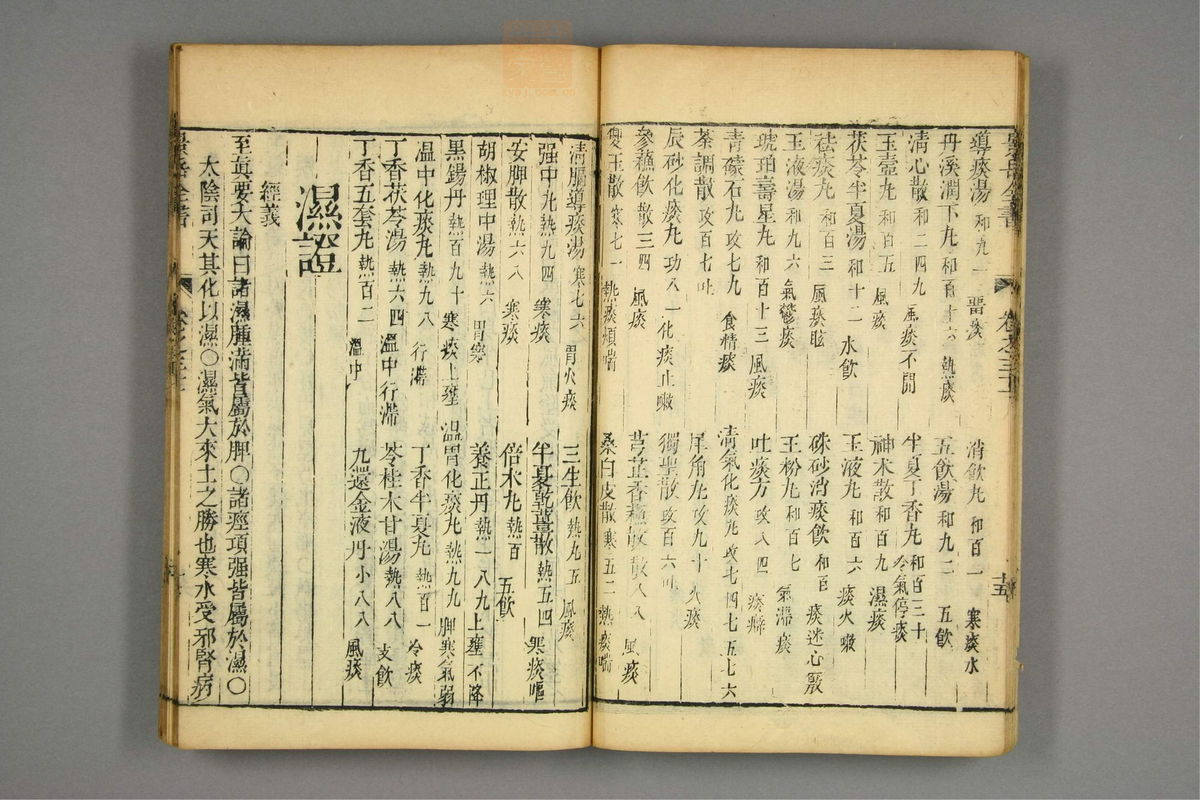 導痰湯 和九一 畱痰 消飲丸 和百一 寒痰水
丹溪潤下丸 和百十六 熱痰 五飲湯 和九二 五飲
清心散 和二四九 風痰不開 半夏丁香丸 和百三十 冷氣停痰
玉壼丸 和百五 風痰 神木散 和百九 濕痰
茯苓半夏湯 和十二 水飲 玉液丸 和百六 痰火嗽
祛痰丸 和百三 風痰眩 硃砂消痰飲 和百 痰迷心竅
玉液湯 和九六 氣鬱痰 玉粉丸 和百七 氣滯痰
琥珀壽星丸 和百十三 風痰 吐痰方 攻八四 痰癖
青礞石丸 攻七九 食積痰 清氣化痰丸 攻七四七五七六
茶調散 攻百七 吐 犀角丸 攻九十 火痰
辰砂化痰丸 攻八一 化痰止嗽 獨聖散 攻百六 吐
參蘇飲 散三四 風痰 芎芷香蘇散 散八八 風痰
雙玉散 寒七一 熱痰煩喘 桑白皮散 寒五二 熱痰喘
清膈導痰湯 寒七六 胃火痰 三生飲 熱九五 風痰
强中丸 熱九四 寒痰 半夏乾薑散 熱五四 寒痰嘔
安脾散 熱六八 寒痰 倍术丸 熱百 五飲
胡椒理中湯 熱六 胃寒 養正丹 熱一八九 上壅不降
黑錫丹 熱百九十 寒痰上壅 温胃化痰丸 熱九九 脾寒氣弱
温中化痰丸 熱九八 行滯 丁香半夏丸 熱百一 冷痰
丁香茯苓湯 熱六四 溫中行滯 苓桂木甘湯 熱八八 支飲
丁香五套丸 熱百二 溫中 九還金液丹 小八八 風痰
濕證
經義
至眞要大論曰諸濕腫滿皆屬於脾○諸痙項强皆屬於濕○
太陰司天其化以濕○濕氣大來土之勝也寒水受邪腎病
景岳全書